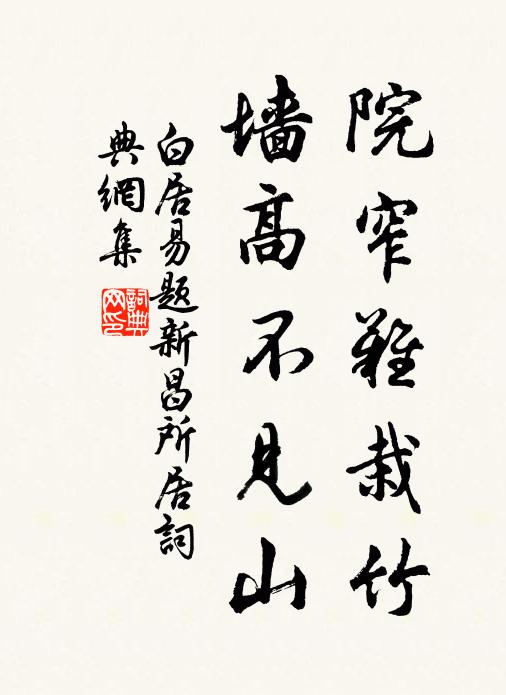 院窄難栽竹
墻高不見山
白居易題新昌所居詞
典網集
詞典
网印